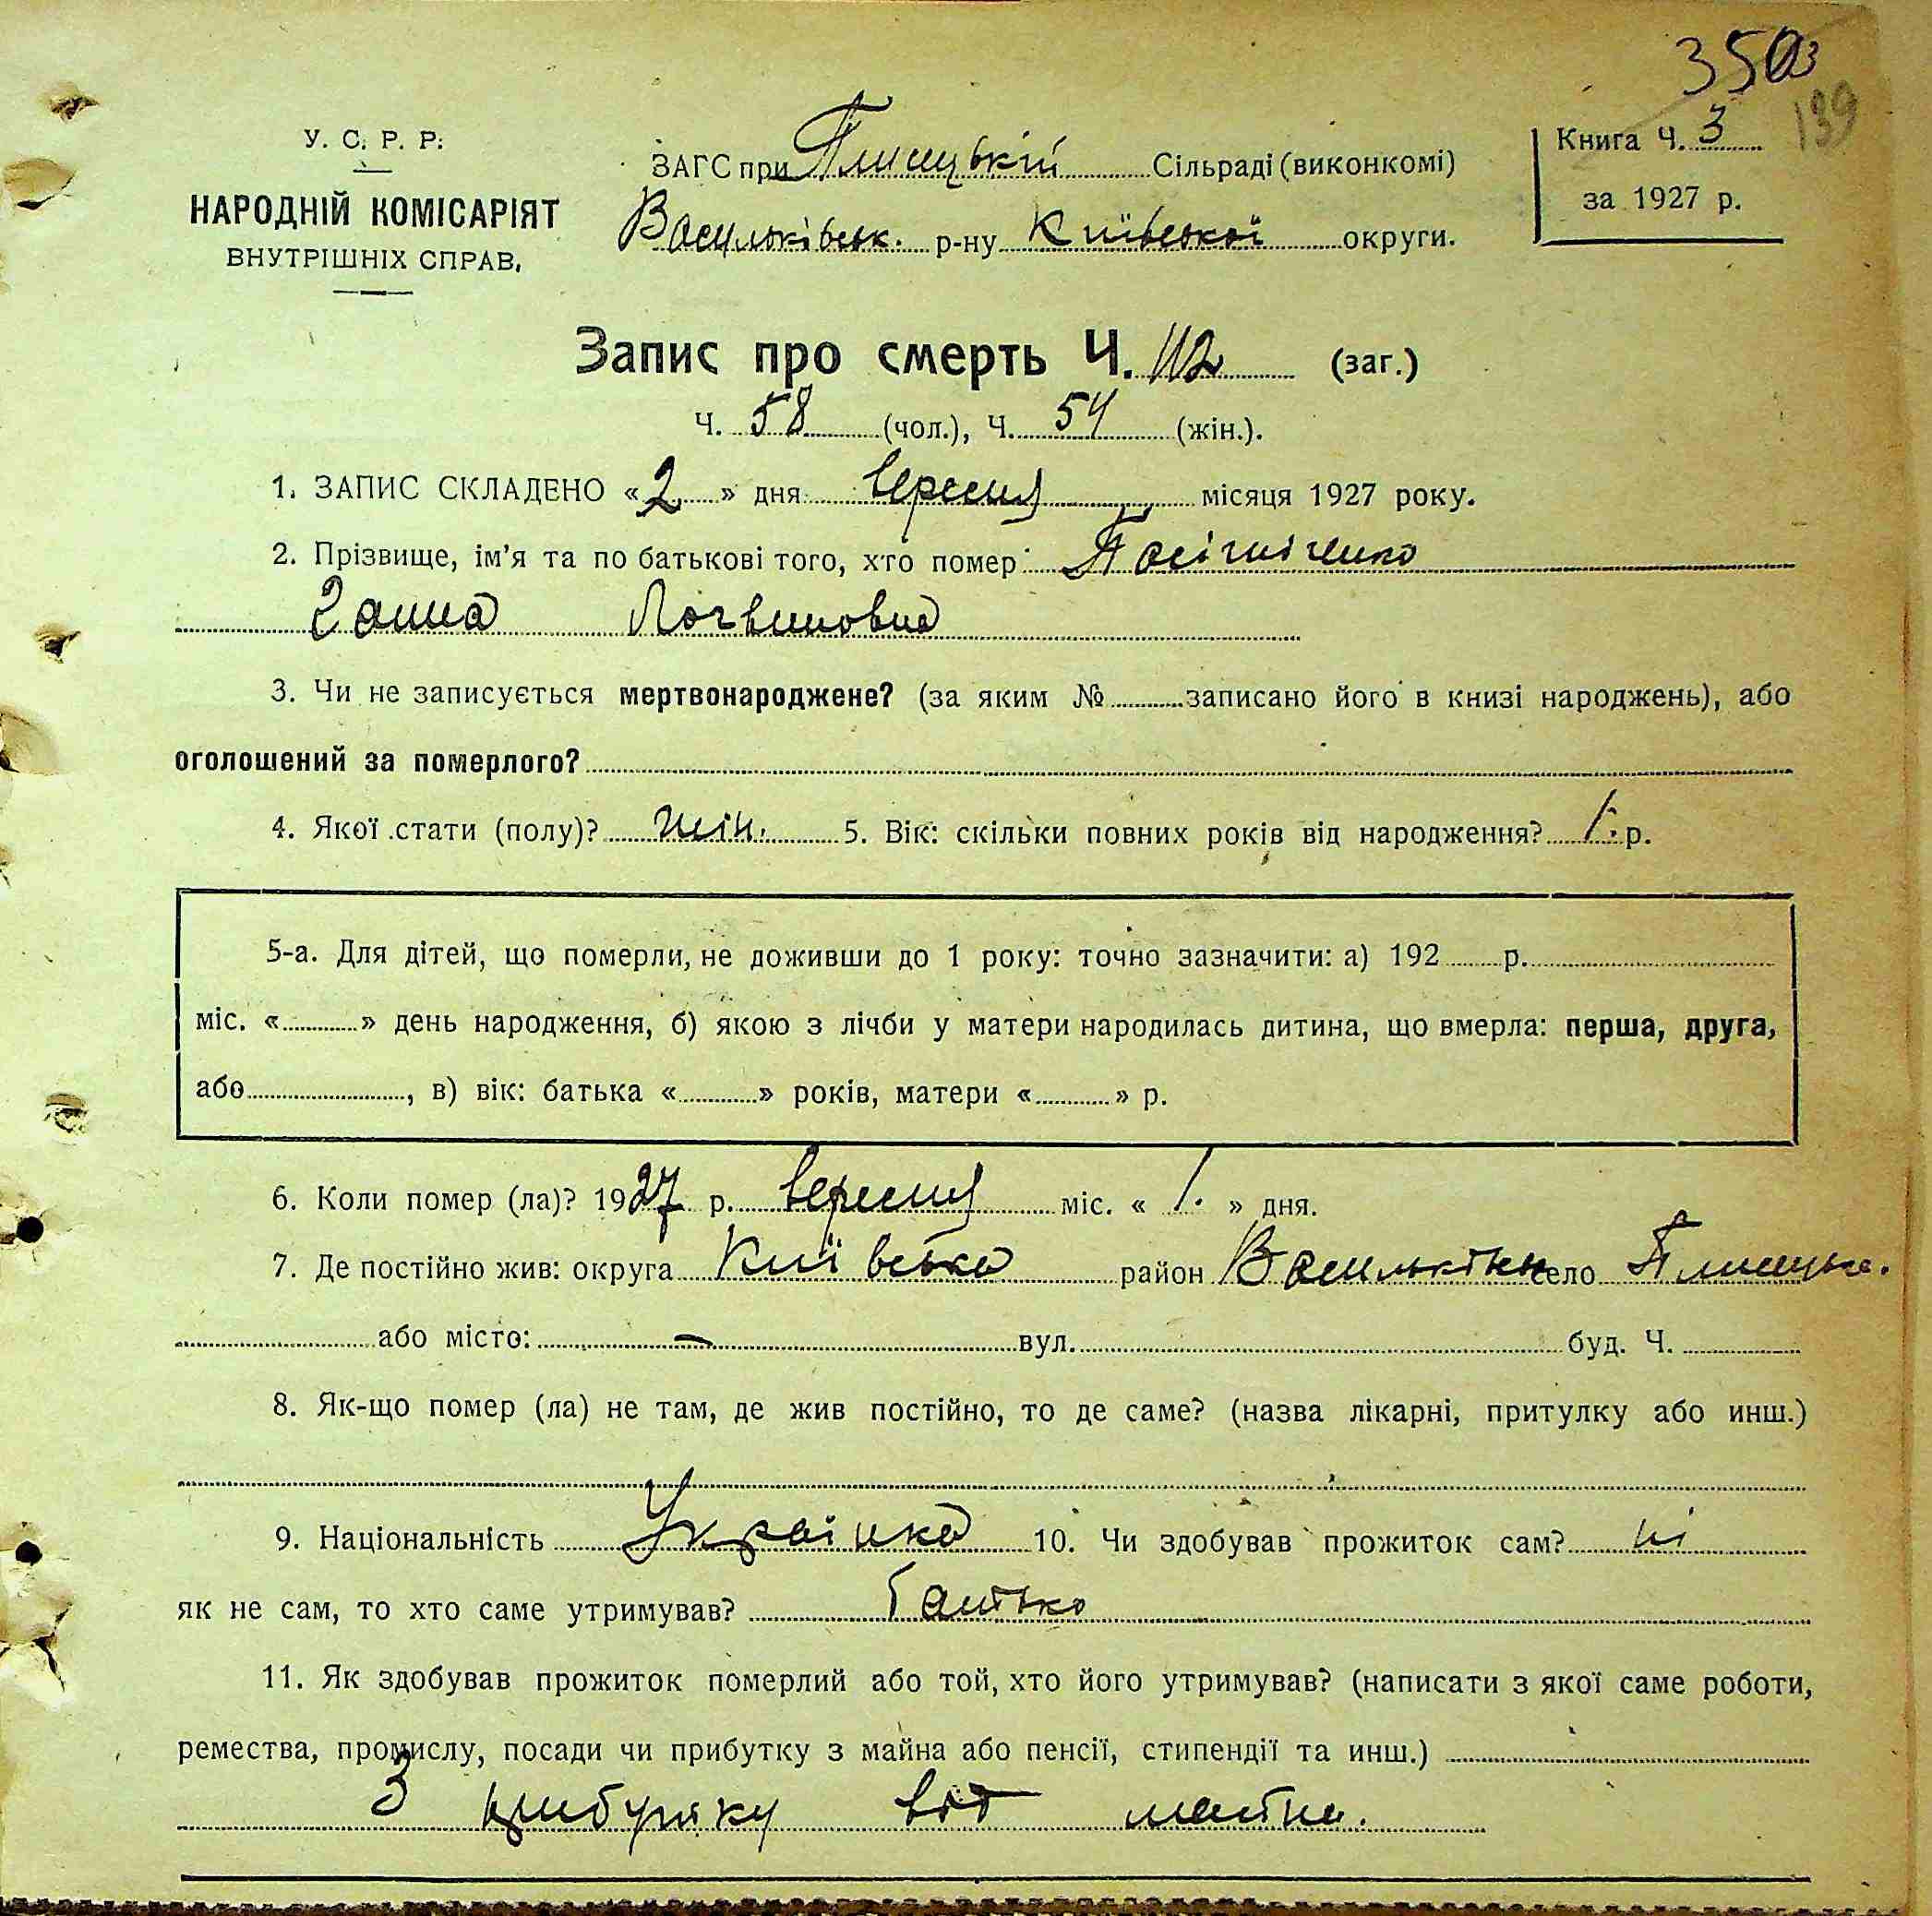 3503
139
У. С. Р. Р.
НАРОДНІЙ КОМІСАРІЯТ
ВНУТРІШНІХ СПРАВ.
ЗАГС при Плисецькій Сільраді (виконкомі)
Васильківськ. р-ну Київської округи.
Книга Ч. 3
за 1927 р.
Запис про смерть Ч. 112 (заг.)
Ч. 58 (чол.), Ч. 54 (жін.).
1. ЗАПИС СКЛАДЕНО «2» дня вересня місяця 1927 року.
2. Прізвище, ім'я та по батькові того, хто помер
Ганна Логвиновна
3. Чи не записується мертвонароджене? (за яким № записано його в книзі народжень), або
оголошений за померлого?
4. Якої стати (полу)? жін. 5. Вік: скільки повних років від народження? 1. р.
5-а. Для дітей, що померли, не доживши до 1 року: точно зазначити: а) 192 р.
міс. « » день народження, б) якою з лічби у матери народилась дитина, що вмерла: перша, друга,
або , в) вік: батька « » років, матери « » р.
6. Коли помер (ла)? 1927 р. вересня міс. « 1. » дня.
7. Де постійно жив: округа Київська район Васильків село
або місто: — вул. буд. Ч.
8. Як-що помер (ла) не там, де жив постійно, то де саме? (назва лікарні, притулку або инш.)
9. Національність Українка 10. Чи здобував прожиток сам? ні
як не сам, то хто саме утримував? батько
11. Як здобував прожиток померлий або той, хто його утримував? (написати з якої саме роботи,
ремества, промислу, посади чи прибутку з майна або пенсії, стипендії та инш.)
З прибутку від майна.